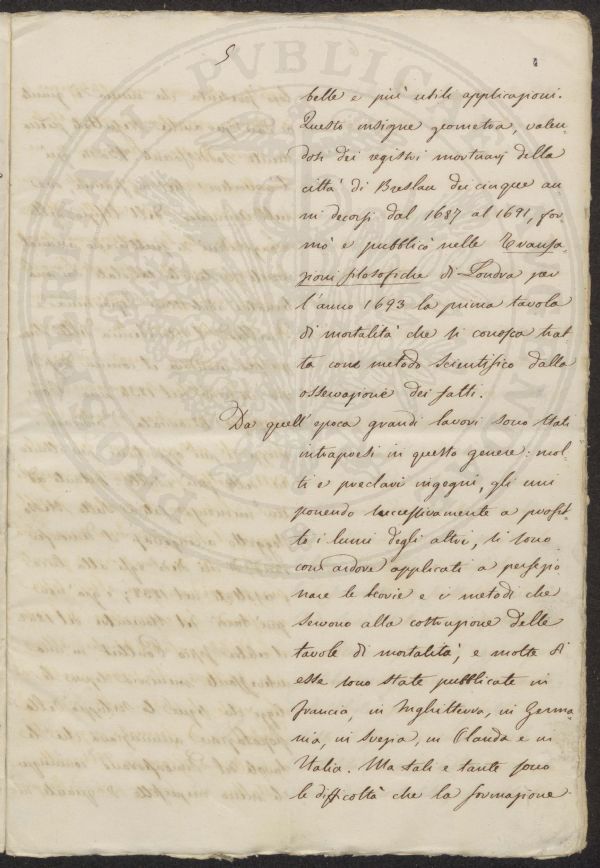 5
belle e più utili applicazioni.
Questo insigne geometra, valen-
dosi dei registri mortuarj della
città di Breslau dei cinque an
ni decorsi dal 1687 al 1691, for-
mò e pubblicò nelle Transa-
zioni filosofiche di Londra per
l'anno 1693 la prima tavola
di mortalità che si conosca trat
ta con metodo scientifico dalla
osservazione dei fatti.
Da quell'epoca grandi lavori sono stati
intrapresi in questo genere: mol-
ti e preclari ingegni, gli uni
ponendo successivamente a profit-
to i lumi degli altri, si sono
con ardore applicati a perfezio
nare le teorie e i metodi che
servono alla costruzione delle
tavole di mortalità, e molte di
esse sono state pubblicate in
Francia, in Inghilterra, in Germa-
nia, in Svezia, in Olanda e in
Italia. Ma tali e tante sono
le difficoltà che la formazione